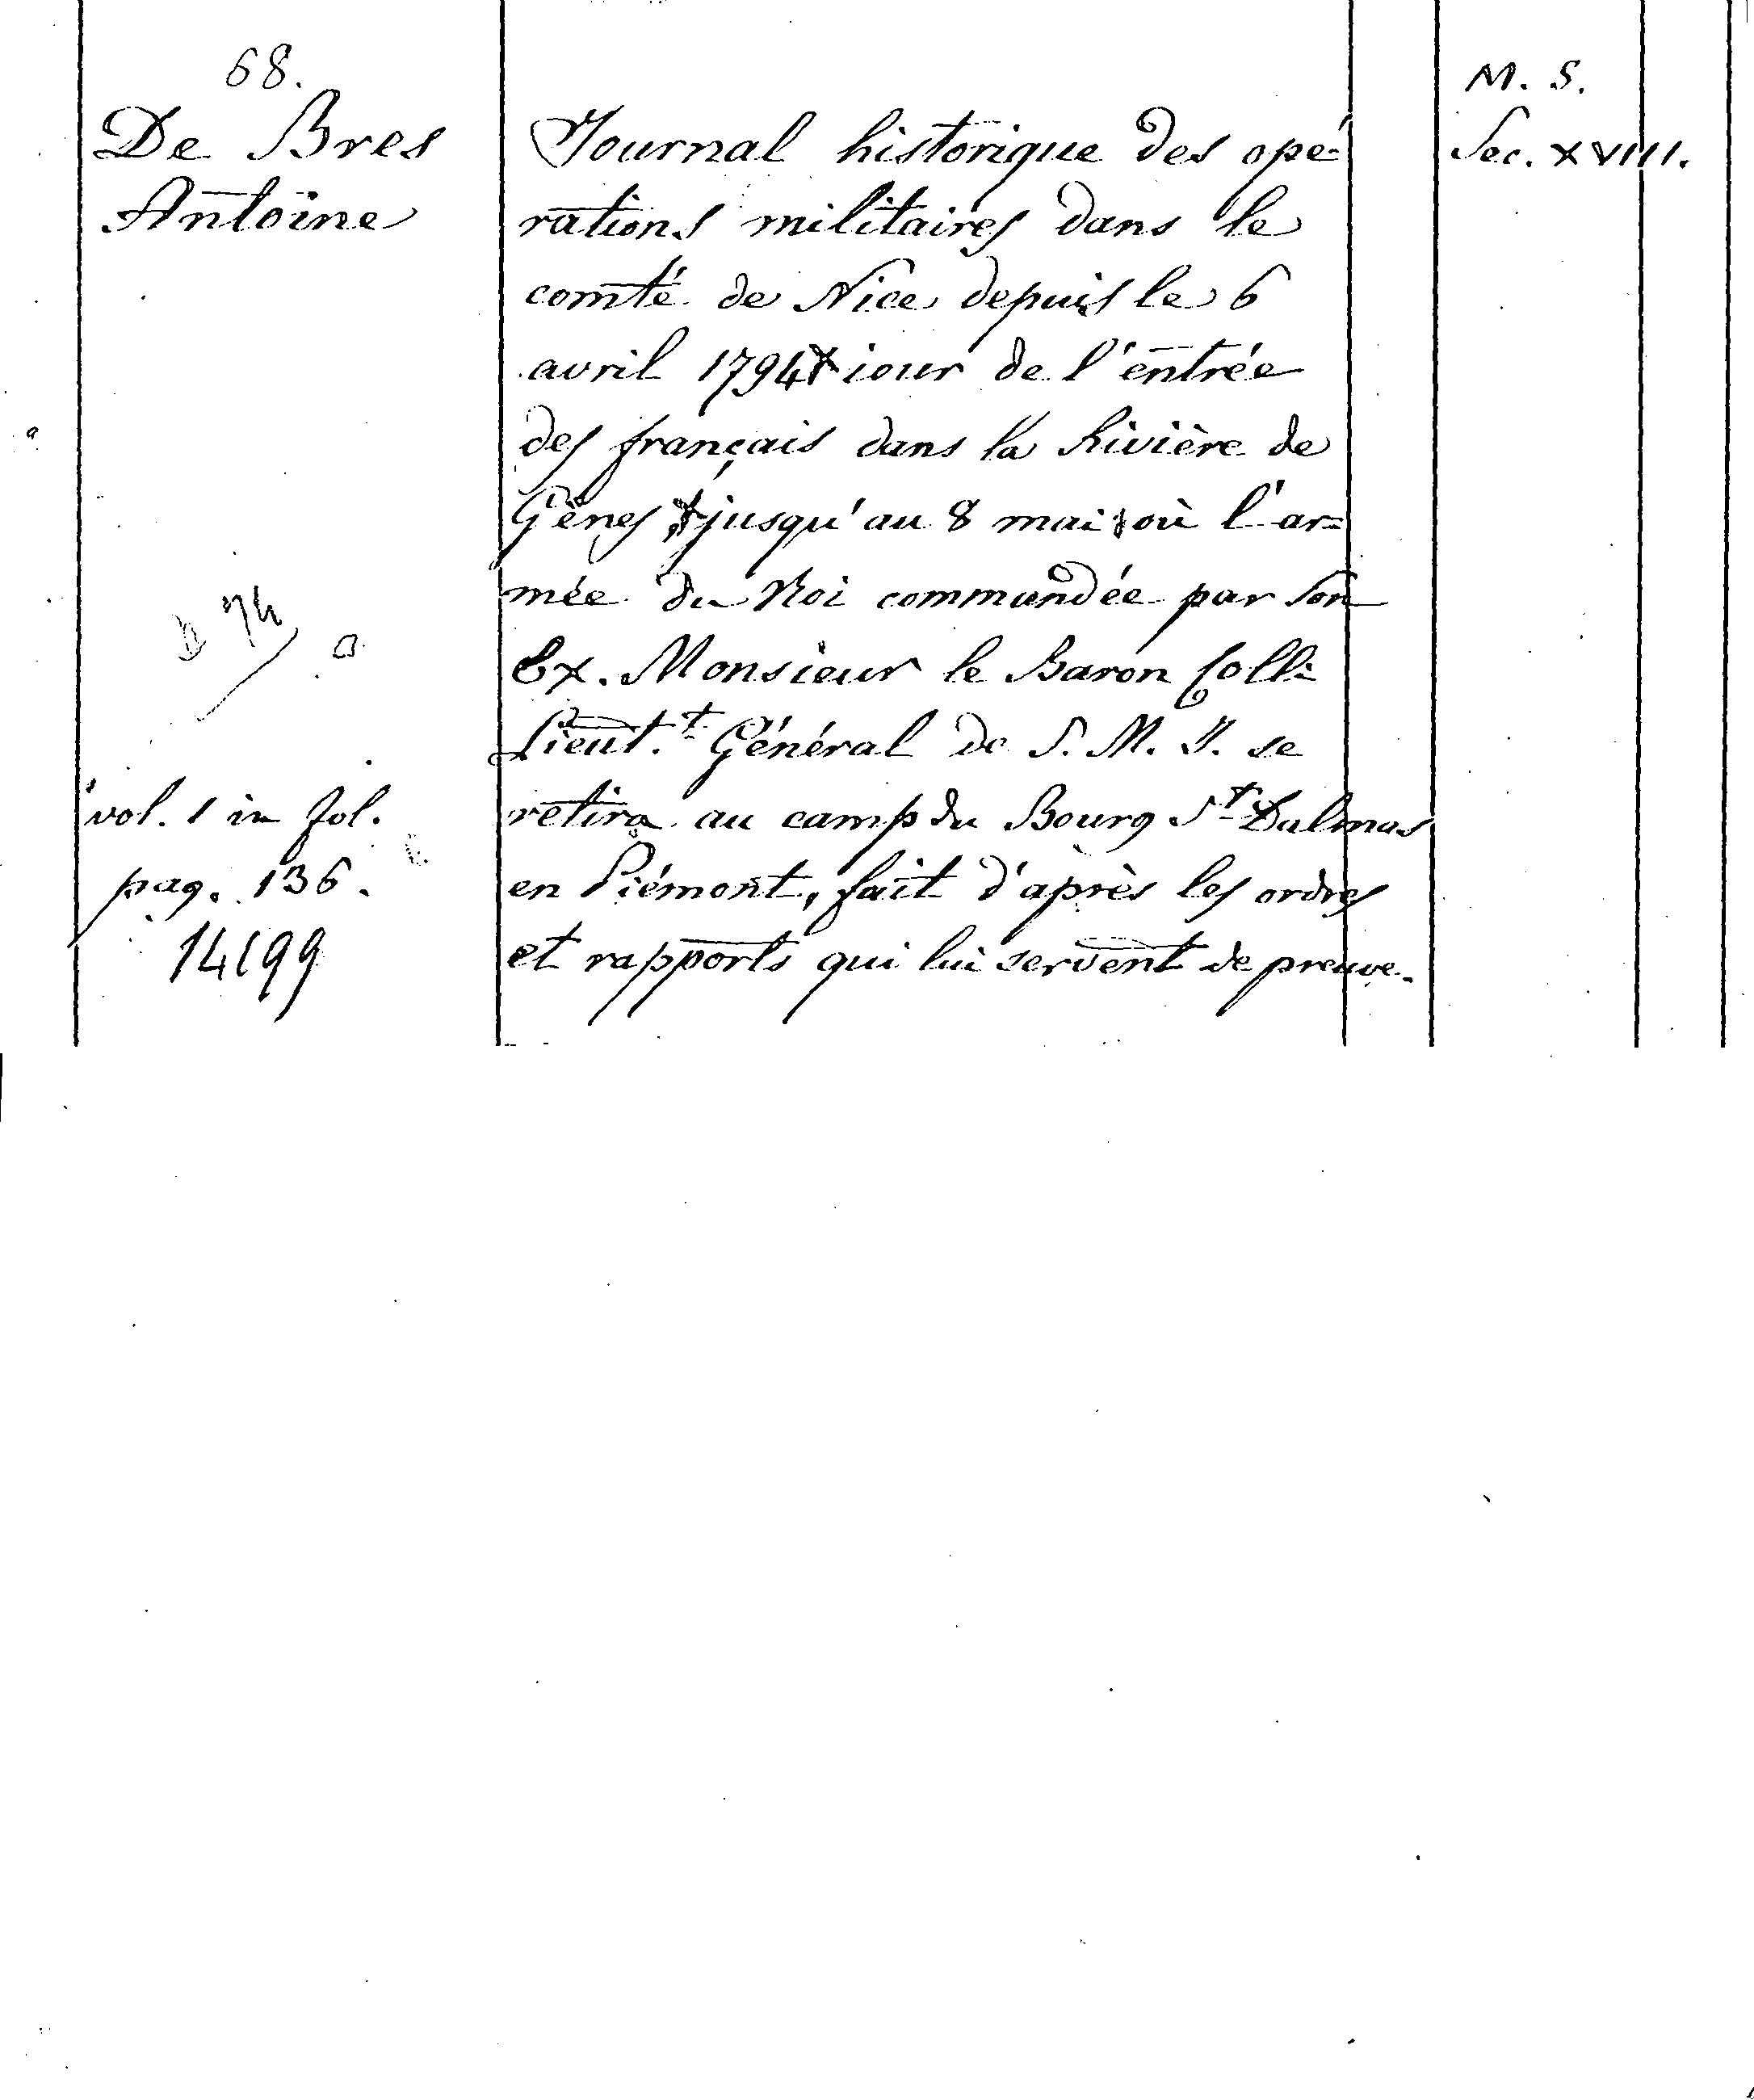 68.
De Bres
Antoine
vol. 1 in fol.
pag. 136.
14199
Journal historique des opé-
rations militaires dans le
comté de Nice depuis le 6
avril 1794 jour de l'entrée
des français dans la Rivière de
Gênes jusqu'au 8 mai où l'ar=
mée du Roi commandée par Son
Ex. Monsieur le Baron Colli
Lieut.t Général de S. M. I. se
retira au camp du Bourg St Dalmas
en Piémont, fait d'après les ordres
et rapports qui lui servent de preuve.
M. S.
Sec. XVIII.